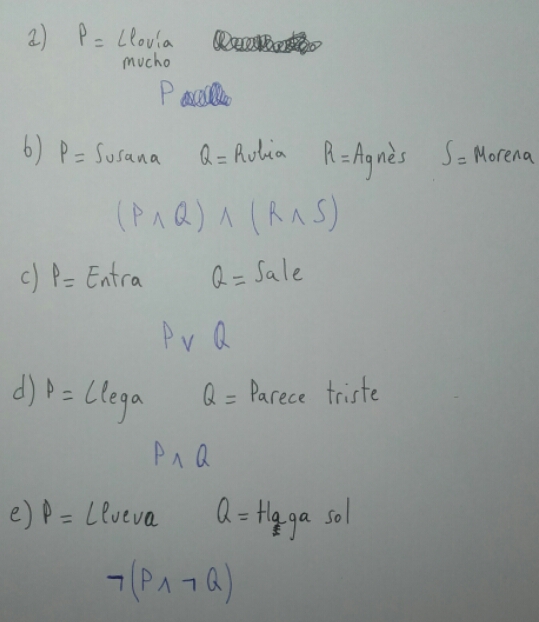 a) P = Llovía
mucho
P
b) P = Susana Q = Rubia R = Agnès S = Morena
(P ∧ Q) ∧ (R ∧ S)
c) P = Entra Q = Sale
P ∨ Q
d) P = Llega Q = Parece triste
P ∧ Q
e) P = Llueva Q = Haga sol
¬(P ∧ ¬Q)